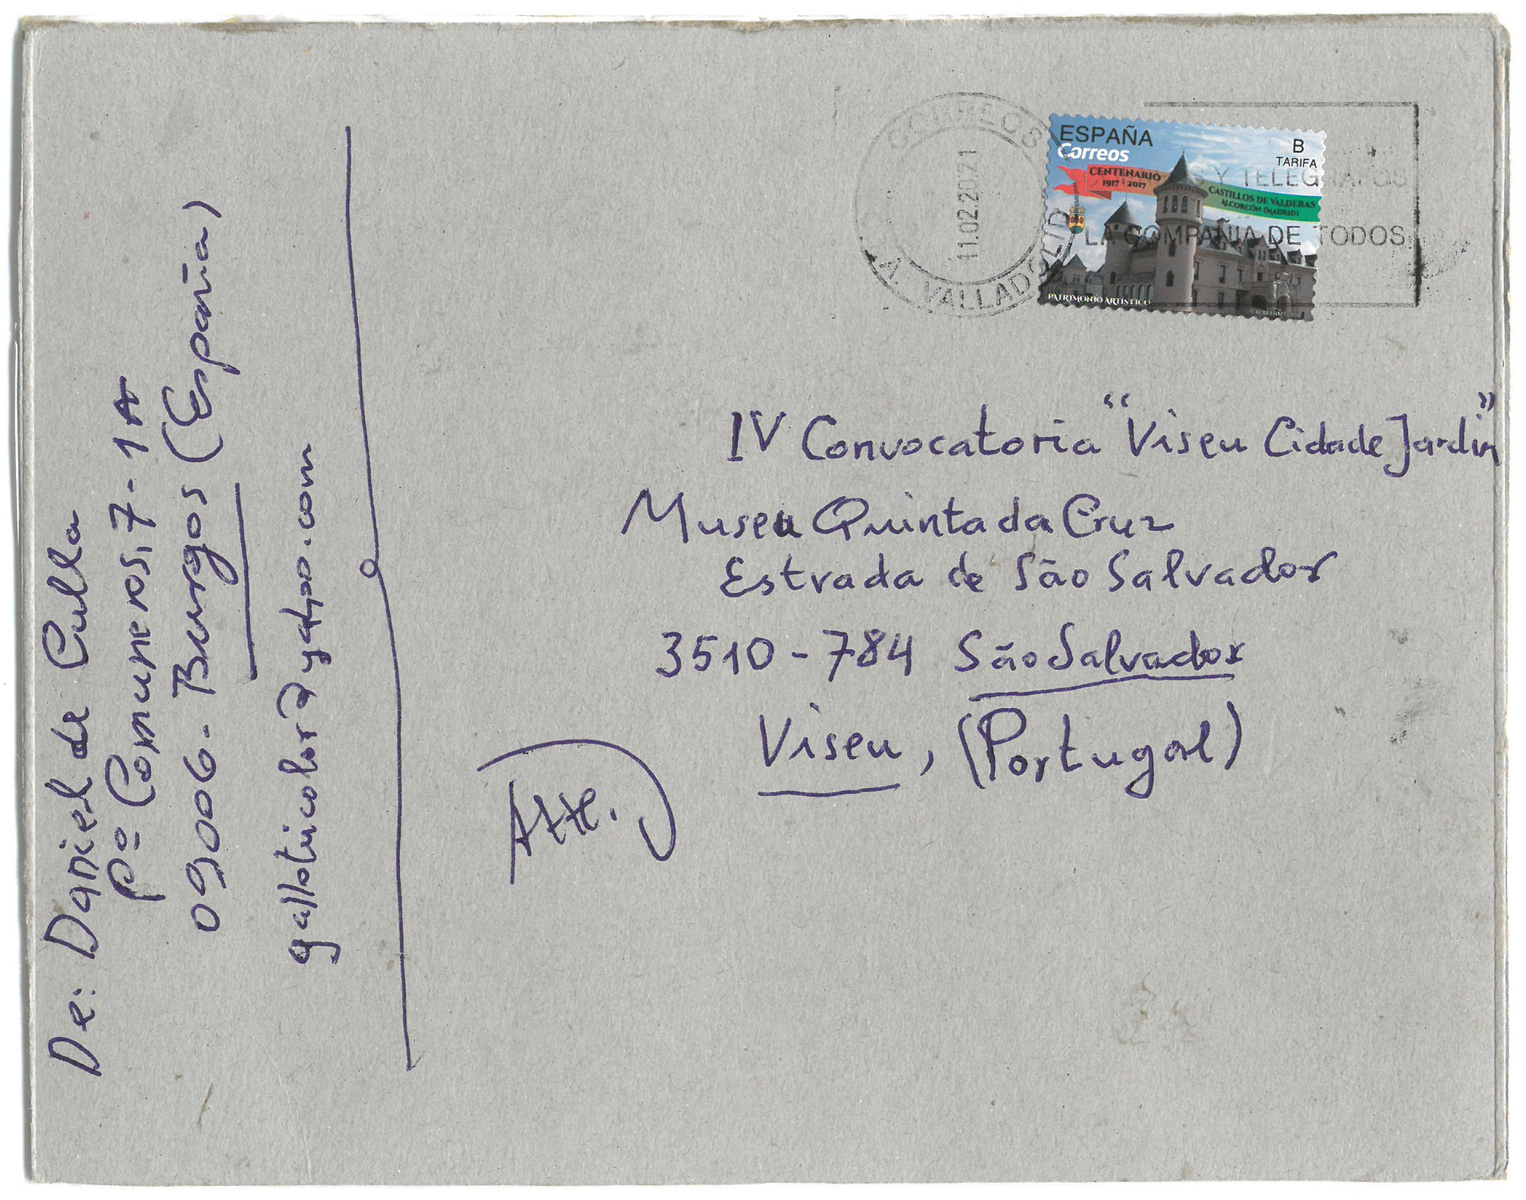 De: Daniel de Culla
Pº Comuneros, 7-1A
09006-Burgos (España)
gallotricolor@yahoo.com
CORREOS
11.02.2021
C.T.A. VALLADOLID
Y TELEGRAFOS
LA COMPAÑIA DE TODOS
ESPAÑA
Correos
B
TARIFA
CENTENARIO
1917-2017
CASTILLOS DE VALDERAS
ALCORCÓN (MADRID)
PATRIMONIO ARTÍSTICO
IV Convocatoria "Viseu Cidade Jardin"
Museu Quinta da Cruz
Estrada de São Salvador
3510-784 São Salvador
Viseu, (Portugal)
Atte.